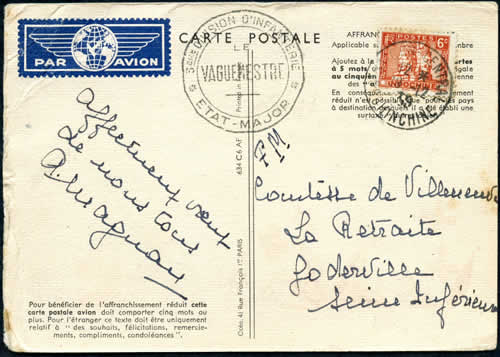 PAR AVION
CARTE POSTALE
5ème DIVISION D'INFANTERIE
LE
VAGUEMESTRE
ETAT-MAJOR
AFFRAN
Applicable
Ajoutez à la cartes
à 5 mots, égale
au cinquième
En conséquence
réduit n'est possible que pour les pays
à destination desquels il a été établi une
surtaxe
POSTES 6c
INDOCHINE
CENTRAL
COCHINCHINE
Printed in
634 C6 AF
FM
affectueux
de nous tous
A. Magnan
Comtesse de Villeneuve
La Retraite
Goderville
Seine Inférieure
Pour bénéficier de l'affranchissement réduit cette
carte postale avion doit comporter cinq mots au
plus. Pour l'étranger ce texte doit être uniquement
relatif à "des souhaits, félicitations, remercie-
ments, compliments, condoléances".
Océo, 41 Rue François 1er PARIS